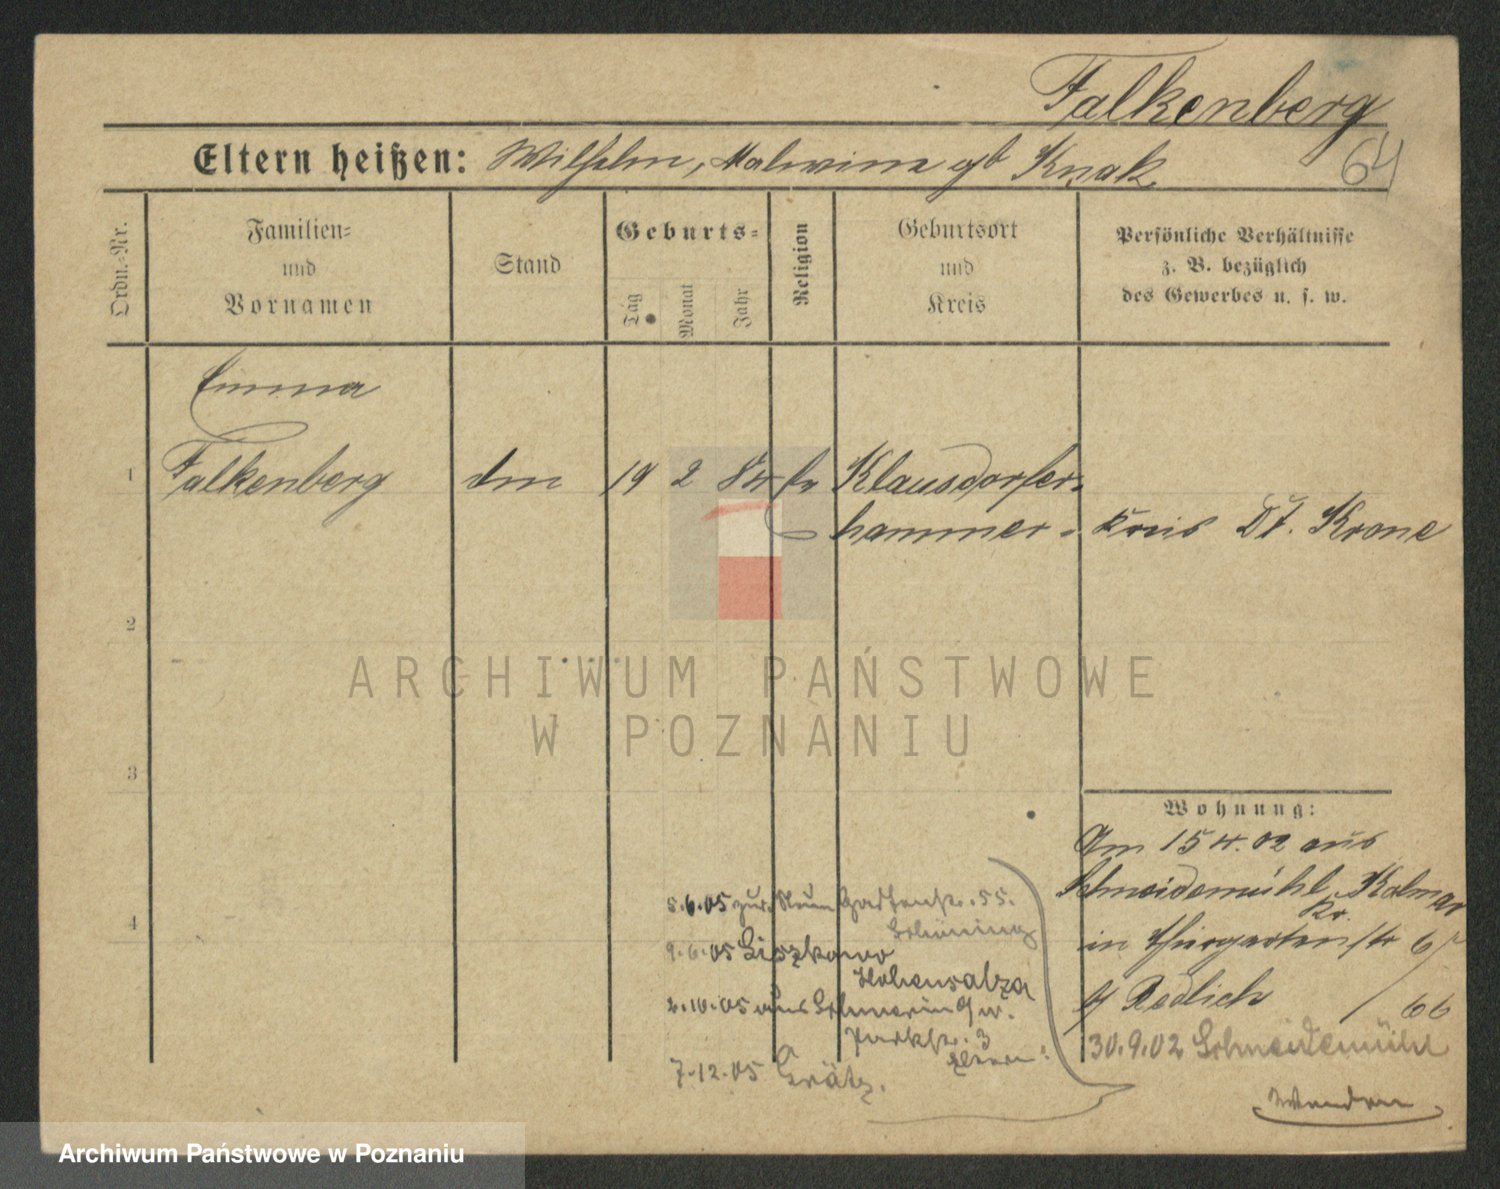 Falkenberg
64
Eltern heißen: Wilhelm, Malwine gb Knak
Ordn.-Nr.
Familien-
und
Vornamen
Stand
Geburts-
Tag
Monat
Jahr
Religion
Geburtsort
und
Kreis
Persönliche Verhältnisse
z. B. bezüglich
des Gewerbes u. s. w.
Emma
1 Falkenberg 19 2 84 Klausdorfer-
hammer - Kreis Dt. Krone
2
3
4
ARCHIWUM PAŃSTWOWE
W POZNANIU
Wohnung:
Am 15 4. 02 aus
Schneidemühl Kr. Kolmar
in Thiergartenstr 6
Redlich / 66
30.9.02 Schneidemühl
5.6.05 55.
Schöning
9.6.05
Hohensalza
2.10.05 aus
Parkstr. 3
7.12.05 Grätz.
Archiwum Państwowe w Poznaniu